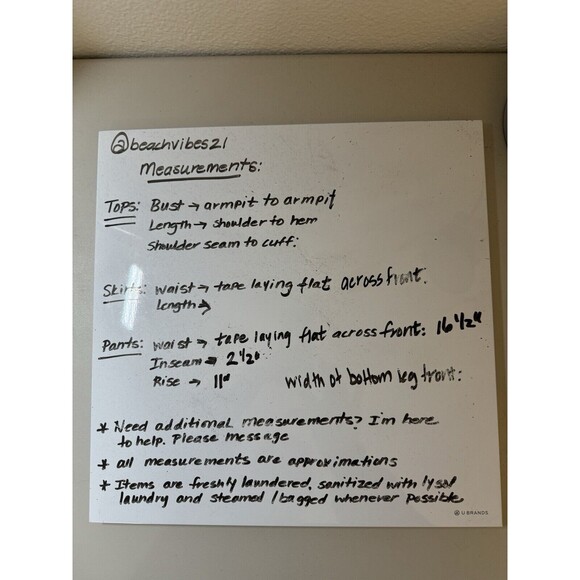 @beachvibes21
Measurements:
Tops: Bust → armpit to armpit
Length → shoulder to hem
Shoulder seam to cuff:
Skirts: waist → tape laying flat across front.
Length →
Pants: waist → tape laying flat across front: 16 1/2"
Inseam → 2 1/2"
Rise → 11" width of bottom leg front:
* Need additional measurements? I'm here
to help. Please message
* all measurements are approximations
* Items are freshly laundered, sanitized with lysol
laundry and steamed / bagged whenever possible
U BRANDS